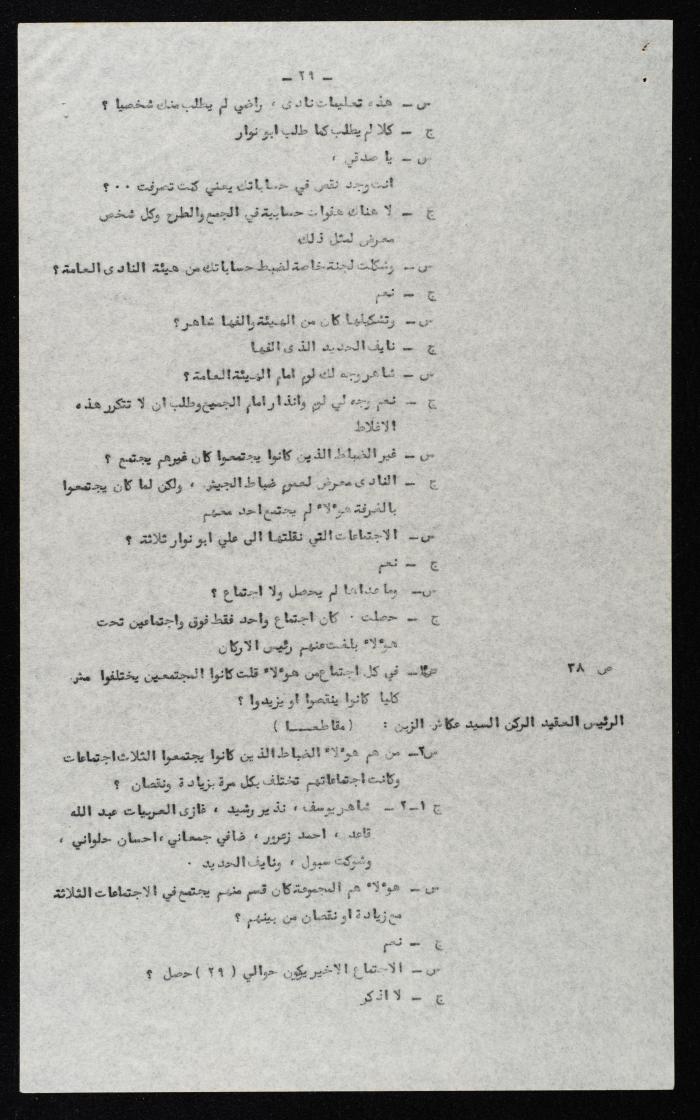 - ٢٩ -
س - هذه تعليمات نادى ، راضي لم يطلب منك شخصيا ؟
ج - كلا لم يطلب كما طلب ابو نوار
س - يا صدقي ،
انت وجد نقص في حساباتك يعني كنت تصرفت ٠٠ ؟
ج - لا هناك هفوات حسابية في الجمع والطرح وكل شخص
معرض لمثل ذلك
س - وشكلت لجنة خاصة لضبط حساباتك من هيئة النادى العامة ؟
ج - نعم
س - وتشكيلها كان من الهيئة والفها شاهر ؟
ج - نايف الحديد الذى الفها
س - شاهر وجه لك لوم امام الهيئة العامة ؟
ج - نعم وجه لي لوم وانذار امام الجميع وطلب ان لا تتكرر هذه
الاغلاط
س - غير الضباط الذين كانوا يجتمعوا كان غيرهم يجتمع ؟
ج - النادى معرض لعموم ضباط الجيش ، ولكن لما كان يجتمعوا
بالغرفة هو°لا° لم يجتمع احد معهم
س - الاجتماعات التي نقلتها الى علي ابو نوار ثلاثة ؟
ج - نعم
س - وما عداها لم يحصل ولا اجتماع ؟
ج - حصلت ٠ كان اجتماع واحد فقط فوق واجتماعين تحت
هو°لا° بلغت عنهم رئيس الاركان
ص ٣٨ س١- في كل اجتماع من هو°لا° قلت كانوا المجتمعين يختلفوا مش
كليا كانوا ينقصوا او يزيدوا ؟
الرئيس العقيد الركن السيد عكاش الزبن : ( مقاطعـــا )
س٢- من هم هو°لا° الضباط الذين كانوا يجتمعوا الثلاث اجتماعات
وكانت اجتماعاتهم تختلف بكل مرة بزيادة ونقصان ؟
ج ١-٢ - شاهر يوسف ، نذير رشيد ، غازى العربيات عبد الله
قاعد ، احمد زعرور ، ضافي جمعاني ، احسان حلواني ،
وشوكت سبول ، ونايف الحديد ٠
س - هو°لا° هم المجموعة كان قسم منهم يجتمع في الاجتماعات الثلاثة
مع زيادة او نقصان من بينهم ؟
ج - نعم
س - الاجتماع الاخير يكون حوالي ( ٢٩ ) حصل ؟
ج - لا اذكر